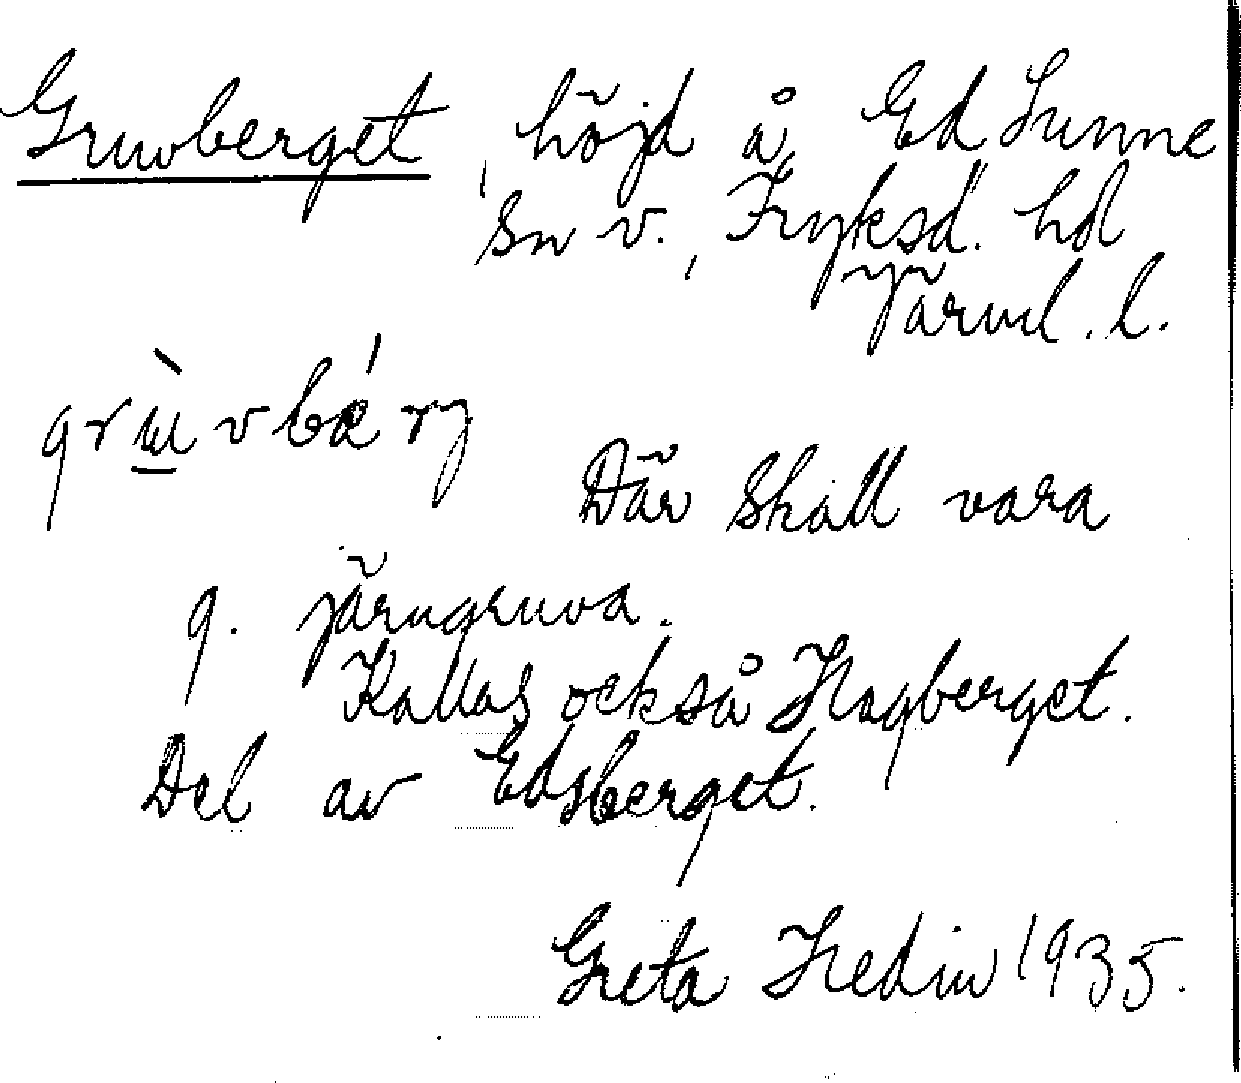 Gruvberget, höjd å Ed Sunne
sn v., Fryksd. hd
Värml. l.
grùvbǽrj
Där skall vara
g. järngruva.
Kallas också Hagberget.
Del av Edsberget.
Greta Hedin 1935.